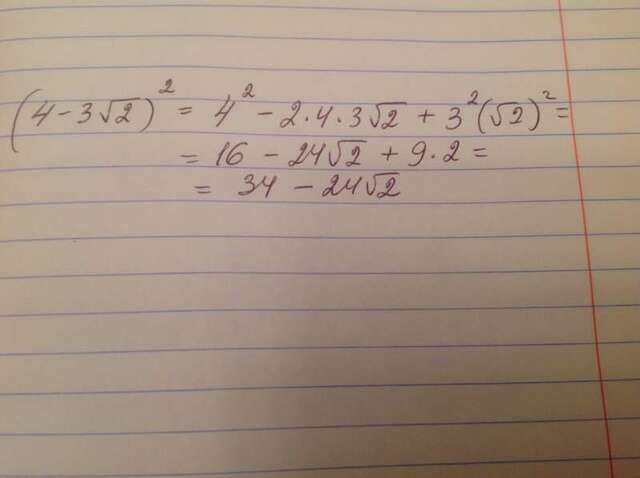 (4-3√2)² = 4² - 2·4·3√2 + 3²(√2)² =
= 16 - 24√2 + 9·2 =
= 34 - 24√2